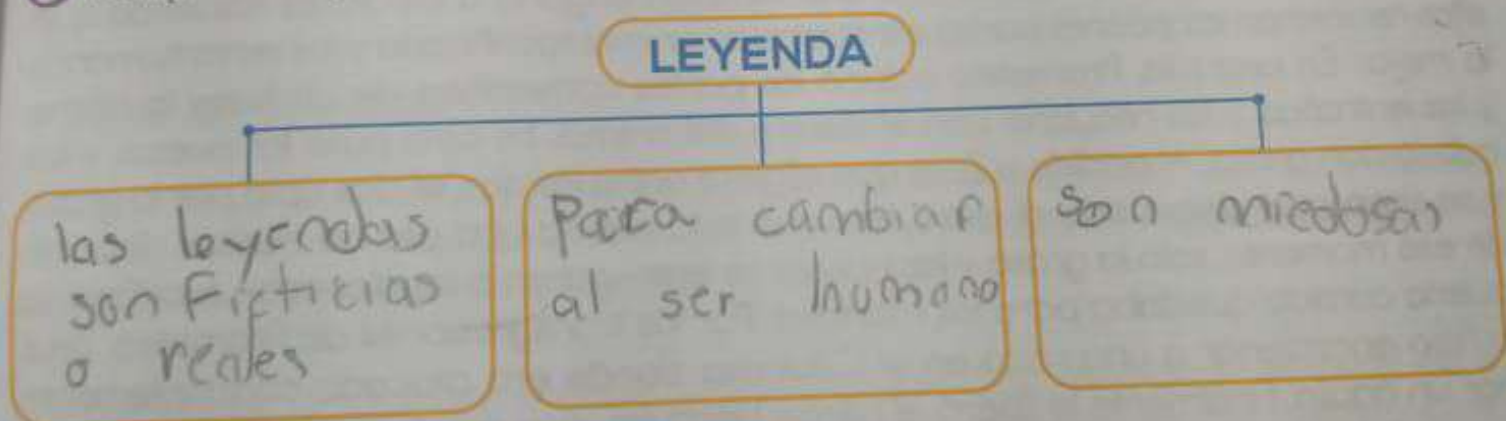 LEYENDA
las leyendas
son Ficticias
o reales
Para cambiar
al ser humano
son miedosas